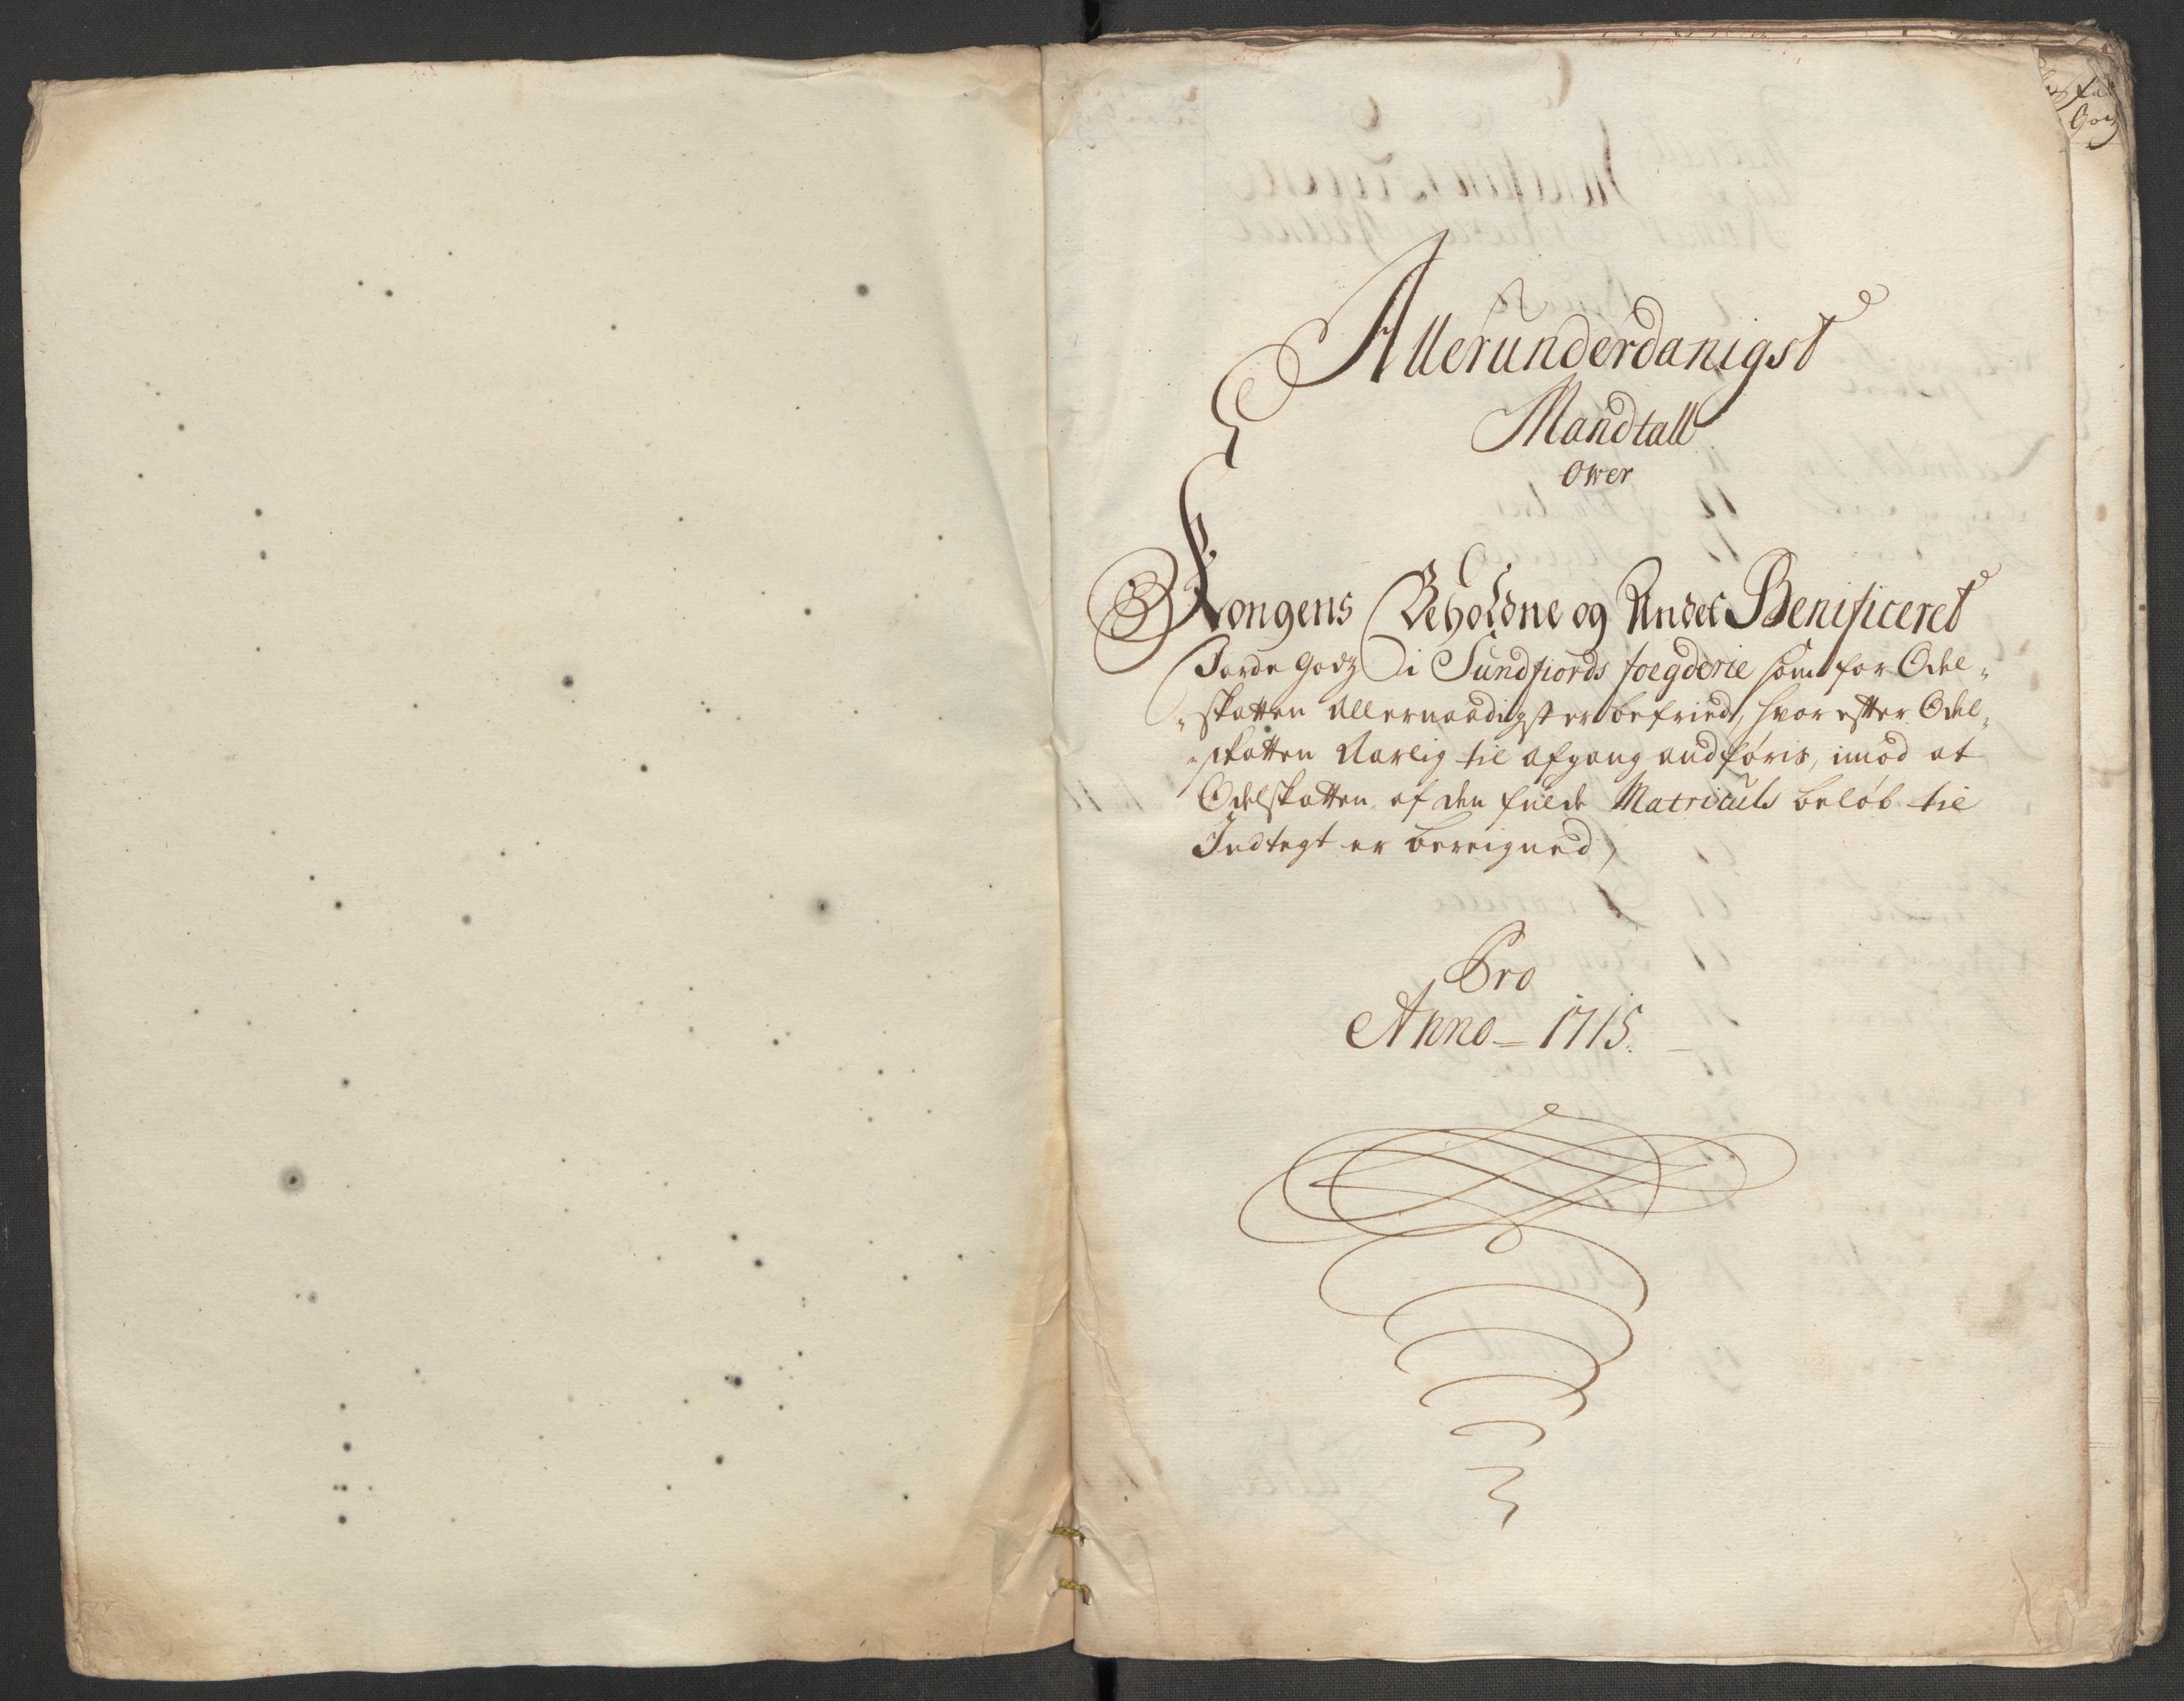 Allerunderdanigst
Mandtall
Ower
Kongens Beholdne og Andet Benificeret
Jorde Godz i Sundfiords foegderie som for Odel-
-skatten Allernaadigst er befried, hvor efter Odel-
-skatten Aarlig til afgang andføris, imod at
Odelskatten af den fulde Matriculs beløb til
Indtegt er bereigned,
Pro
Anno = 1715.